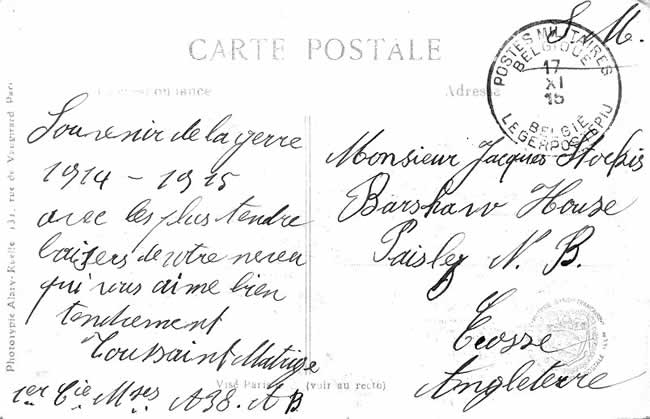 S. M.
CARTE POSTALE
Correspondance
Adresse
POSTES MILITAIRES
BELGIQUE
17
XI
15
BELGIË
LEGERPOSTERIJ
Souvenir de la gerre
1914 - 1915
avec les plus tendre
baisers de votre neveu
qui vous aime bien
tendrement
Toussaint
1er Cie Mses A38. A B.
Monsieur Jacques
Barshaw House
Paisley N. B.
Ecosse
Angleterre
Visé Paris (voir au recto)
Phototypie Alary-Ruelle 131, rue de Vaugirard Paris